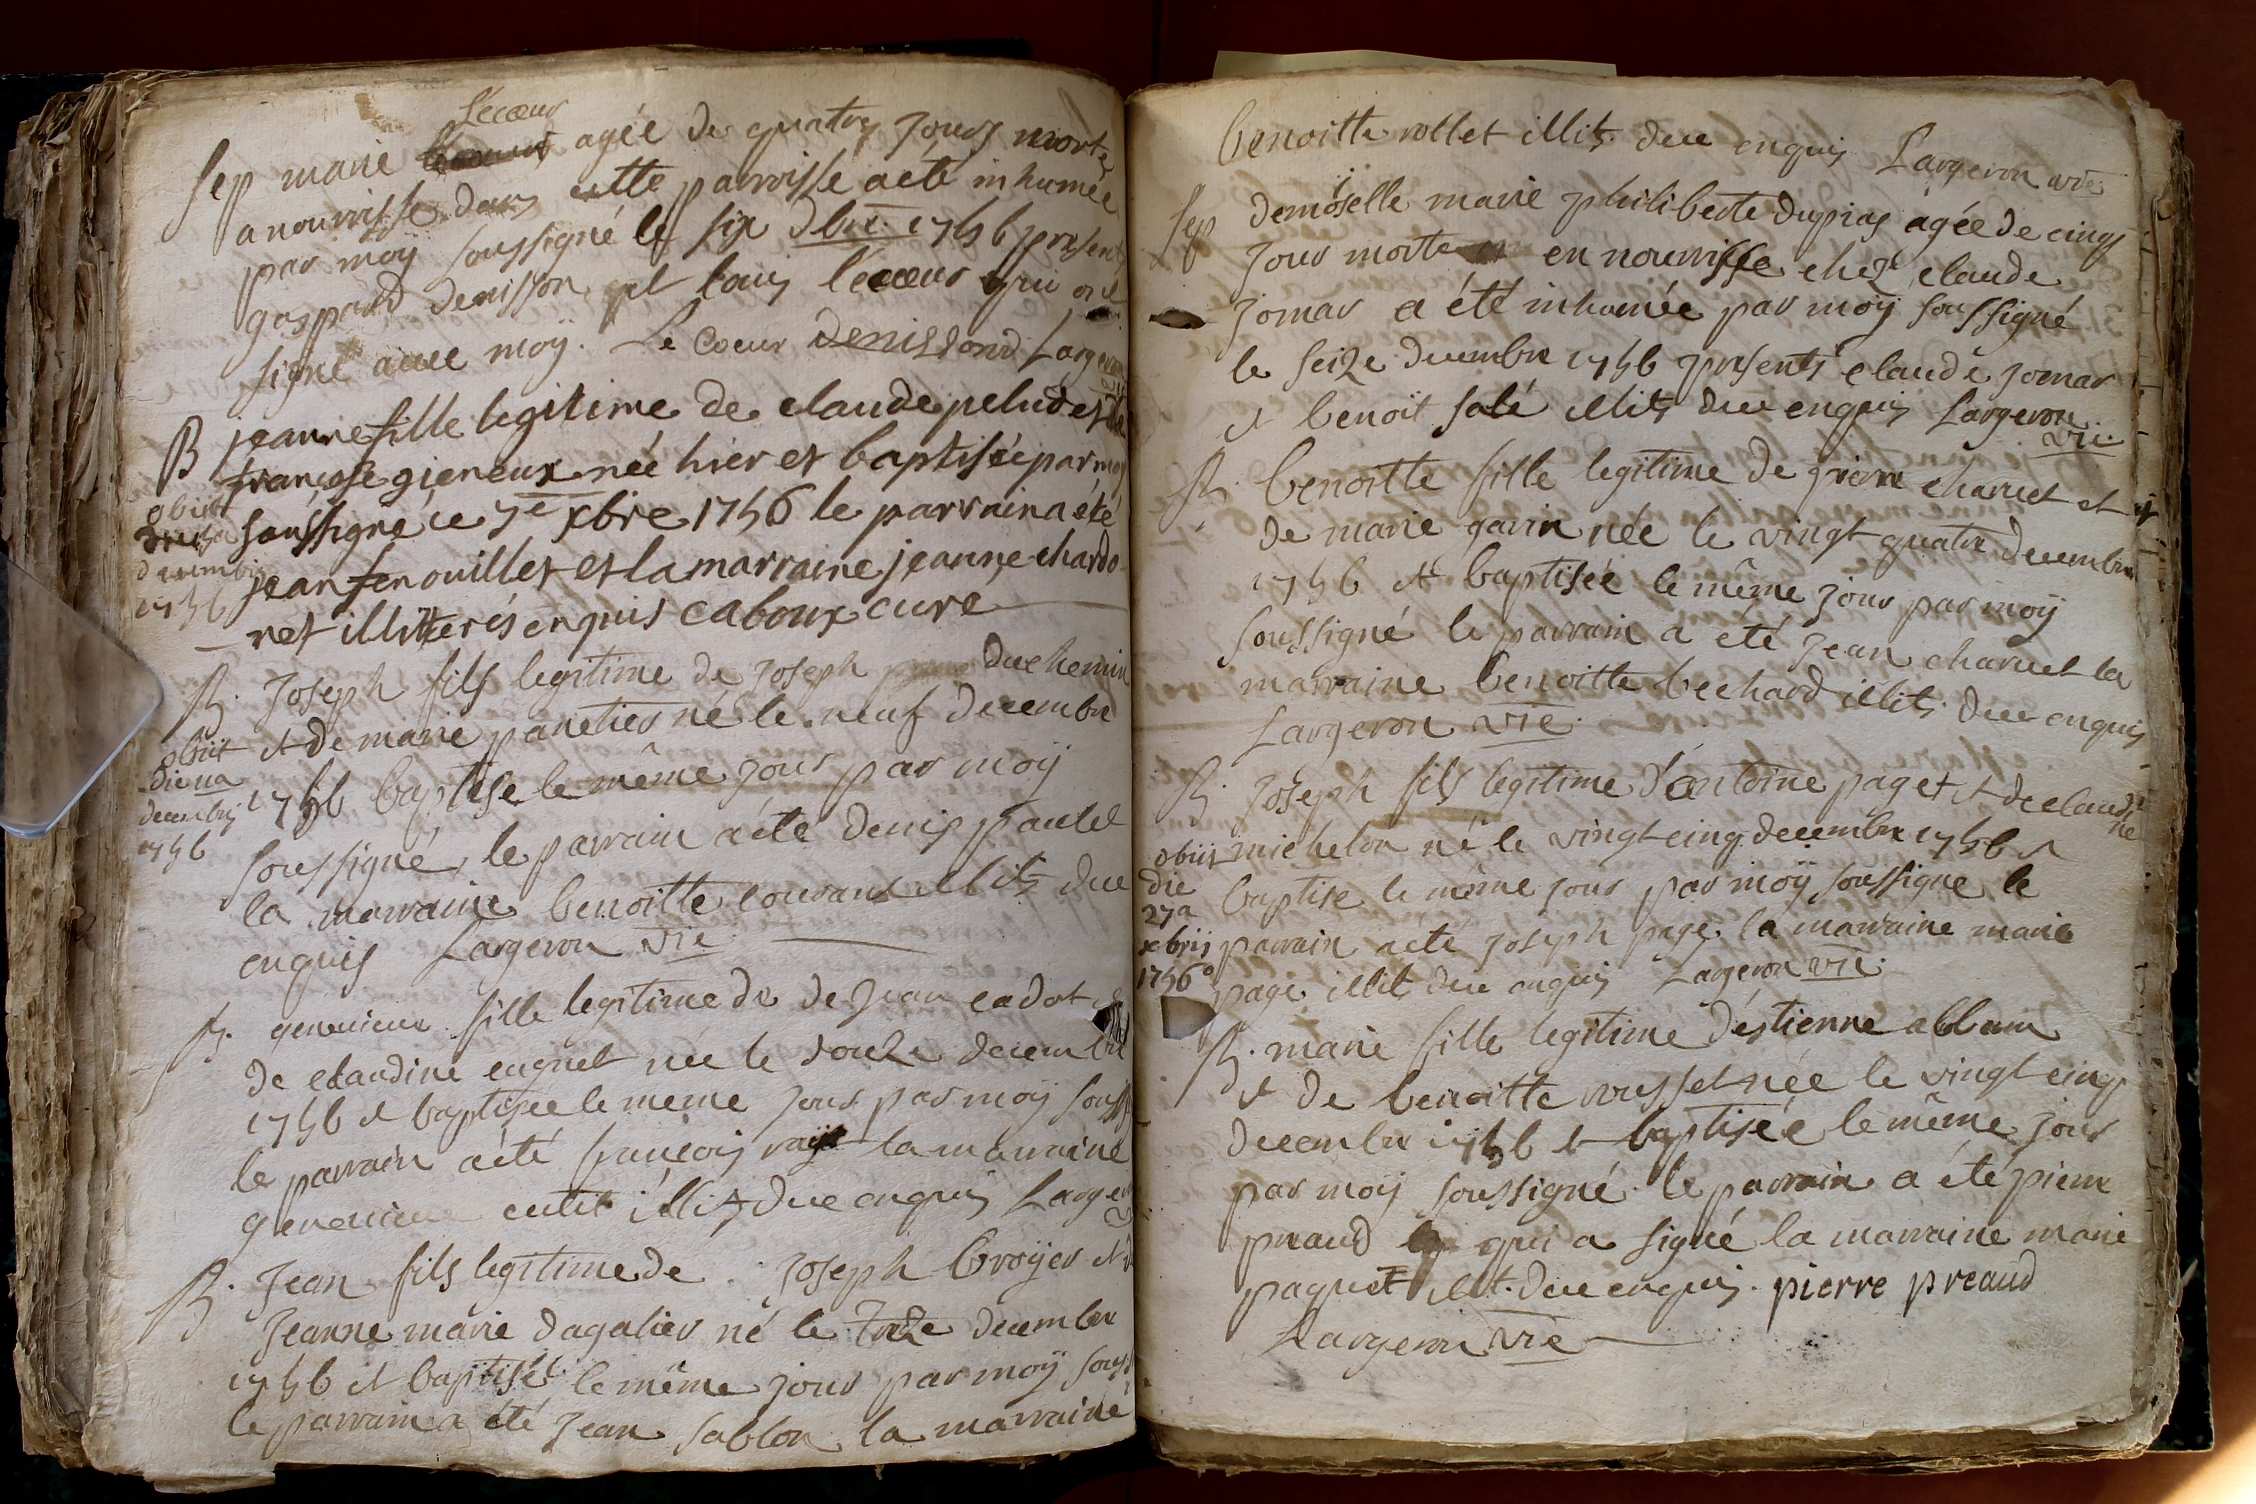 Lécœur
Sep marie agée de quatre jours morte
a nourrisse dans cette parroisse a été inhumée
par moÿ soussigné le six Xbre 1756 presents
gaspard denisson et louis lécœur qui ont
signé avec moÿ. Le Coeur denissond Largeron
vie
B jeanne fille legitime de claude pelud et de
françoise gieneux née hier et baptisée par moy
soussigné ce 7e xbre 1756 le parrain a été
jean fenouillet et la marraine jeanne chardo
net illitterés enquis caboux curé
obiit
decembris
1756
B. Joseph fils legitime de Joseph duchemin
et de marie panetier né le neuf decembre
1756 baptisé le même jour par moÿ
soussigné, le parrain a été denis pautet
la marraine benoitte couvans illits due
enquis Largeron vie
obiit
die
decembris
1756
B. genevieve fille legitime de de Jean cadot et
de claudine euguet née le douze decembre
1756 et baptisée le même jour par moÿ souss
le parrain a été françois la marraine
genevieve illits due enquis Largeron
B. Jean fils legitime de Joseph broÿer et de
Jeanne marie dagalier né le treize decembre
1756 et baptisé le même jour par moÿ souss
le parrain a été Jean sablon la marraine
benoitte rollet illits due enquis Largeron vie
Sep demoiselle marie philiberte dupias agée de cinq
jours morte en nourrisse chez claude
jomar a été inhumée par moÿ soussigné
le seize decembre 1756 presents claude jomar
et benoit salé illits due enquis Largeron
vie.
B. benoitte fille legitime de pierre charvet et
de marie gavin née le vingt quatre decembre
1756 et baptisée le même jour par moÿ
soussigné le parrain a été Jean charvet la
marraine benoitte bechard illits due enquis
Largeron vie.
B. Joseph fils legitime d'antoine paget et de claudi
ne
michelon né le vingt cinq decembre 1756 et
baptisé le même jour par moÿ soussigné le
parrain a été Joseph page la marraine marie
page illits due enquis Largeron vie.
obiit
die
27a
xbris
1756°
B. marie fille legitime d'éstienne allain
et de benoitte russet née le vingt cinq
decembre 1756 et baptisée le même jour
par moÿ soussigné le parrain a été pierre
preaud qui a signé la marraine marie
paquet illit. due enquis. pierre preaud
Largeron vie